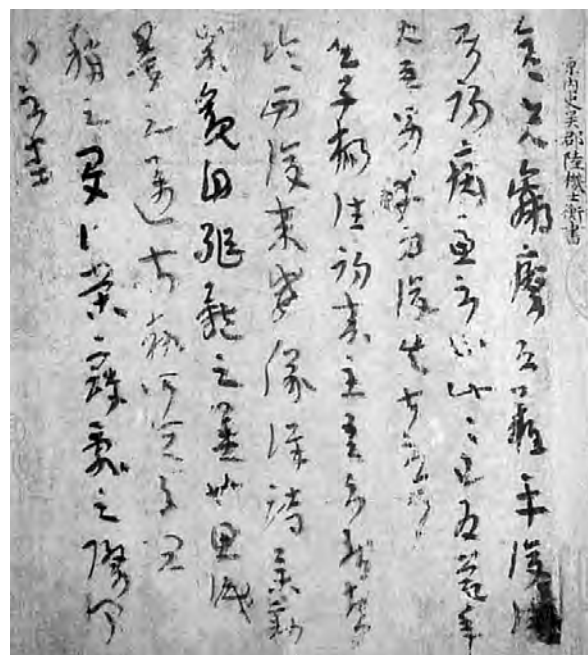 晉內史吳郡陸機士衡書
彥先羸瘵恐難平復往屬
初病慮不止此此已為慶承
使唯男幸為復失前憂耳
吳子楊往初來主吾不能盡
臨西復來威儀詳跱舉動
成觀自軀體之美也思識
量之邁前執所恒有宜
稱之夏伯榮寇亂之際聞
問不悉